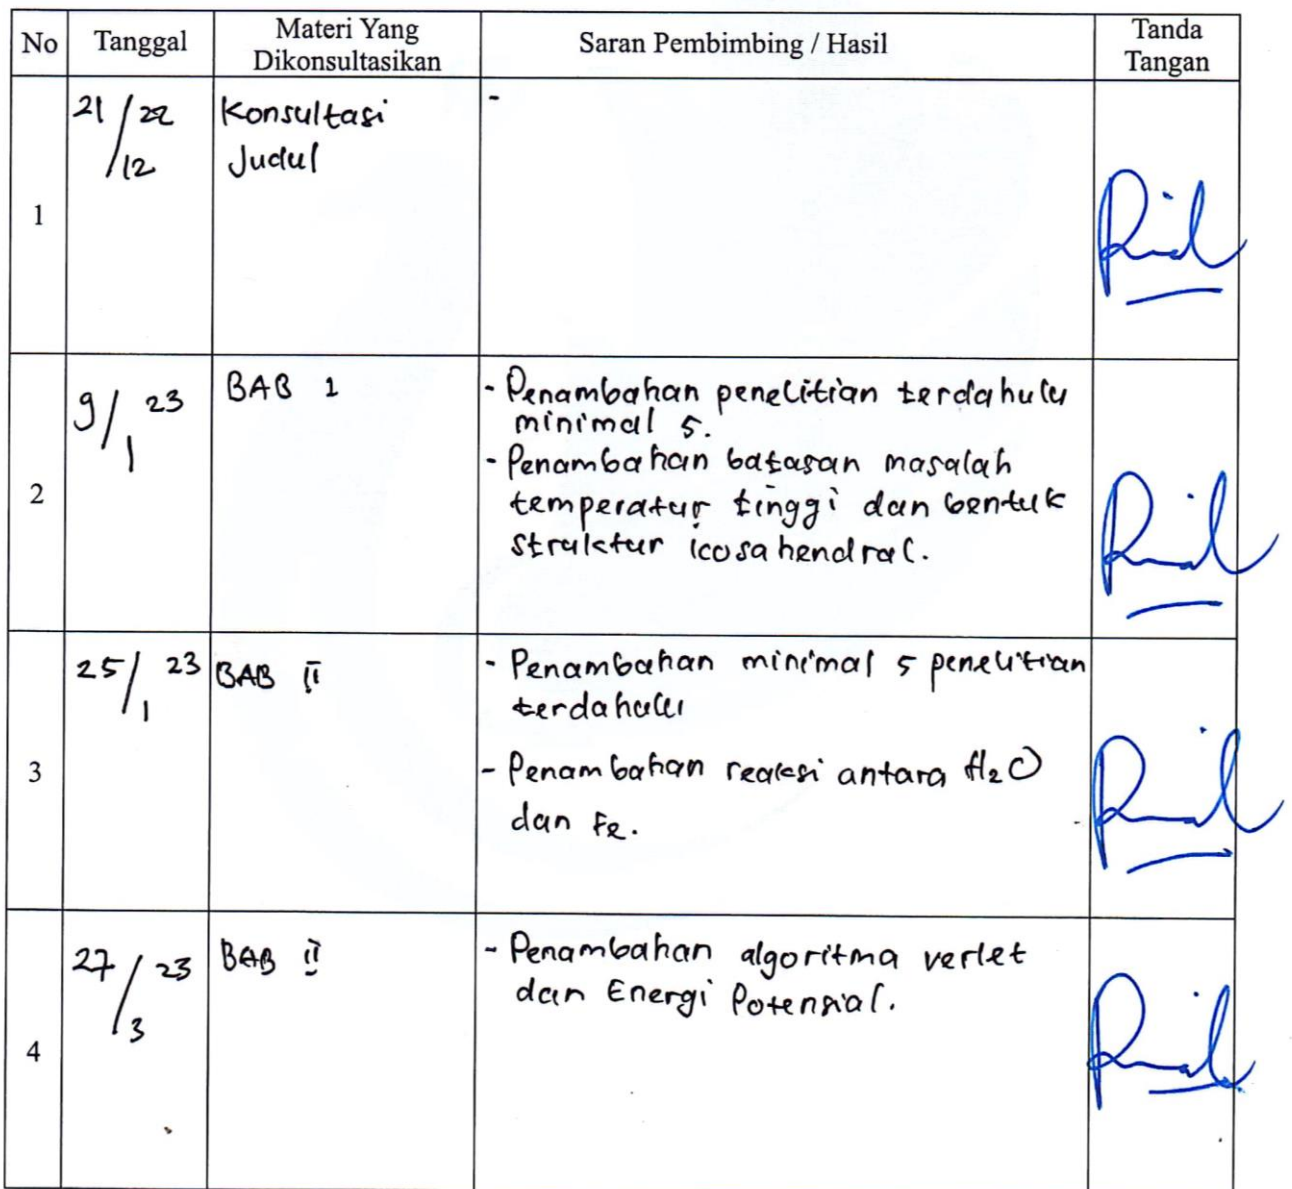 No Tanggal Materi Yang Dikonsultasikan Saran Pembimbing / Hasil Tanda Tangan
1
21/12 22
Konsultasi
Judul
-
2
9/1 23
BAB 1
- Penambahan penelitian terdahulu
minimal 5.
- Penambahan batasan masalah
temperatur tinggi dan bentuk
struktur icosahendral.
3
25/1 23
BAB II
- Penambahan minimal 5 penelitian
terdahulu
- Penambahan reaksi antara H₂O
dan Fe.
4
27/3 23
BAB II
- Penambahan algoritma verlet
dan Energi Potensial.